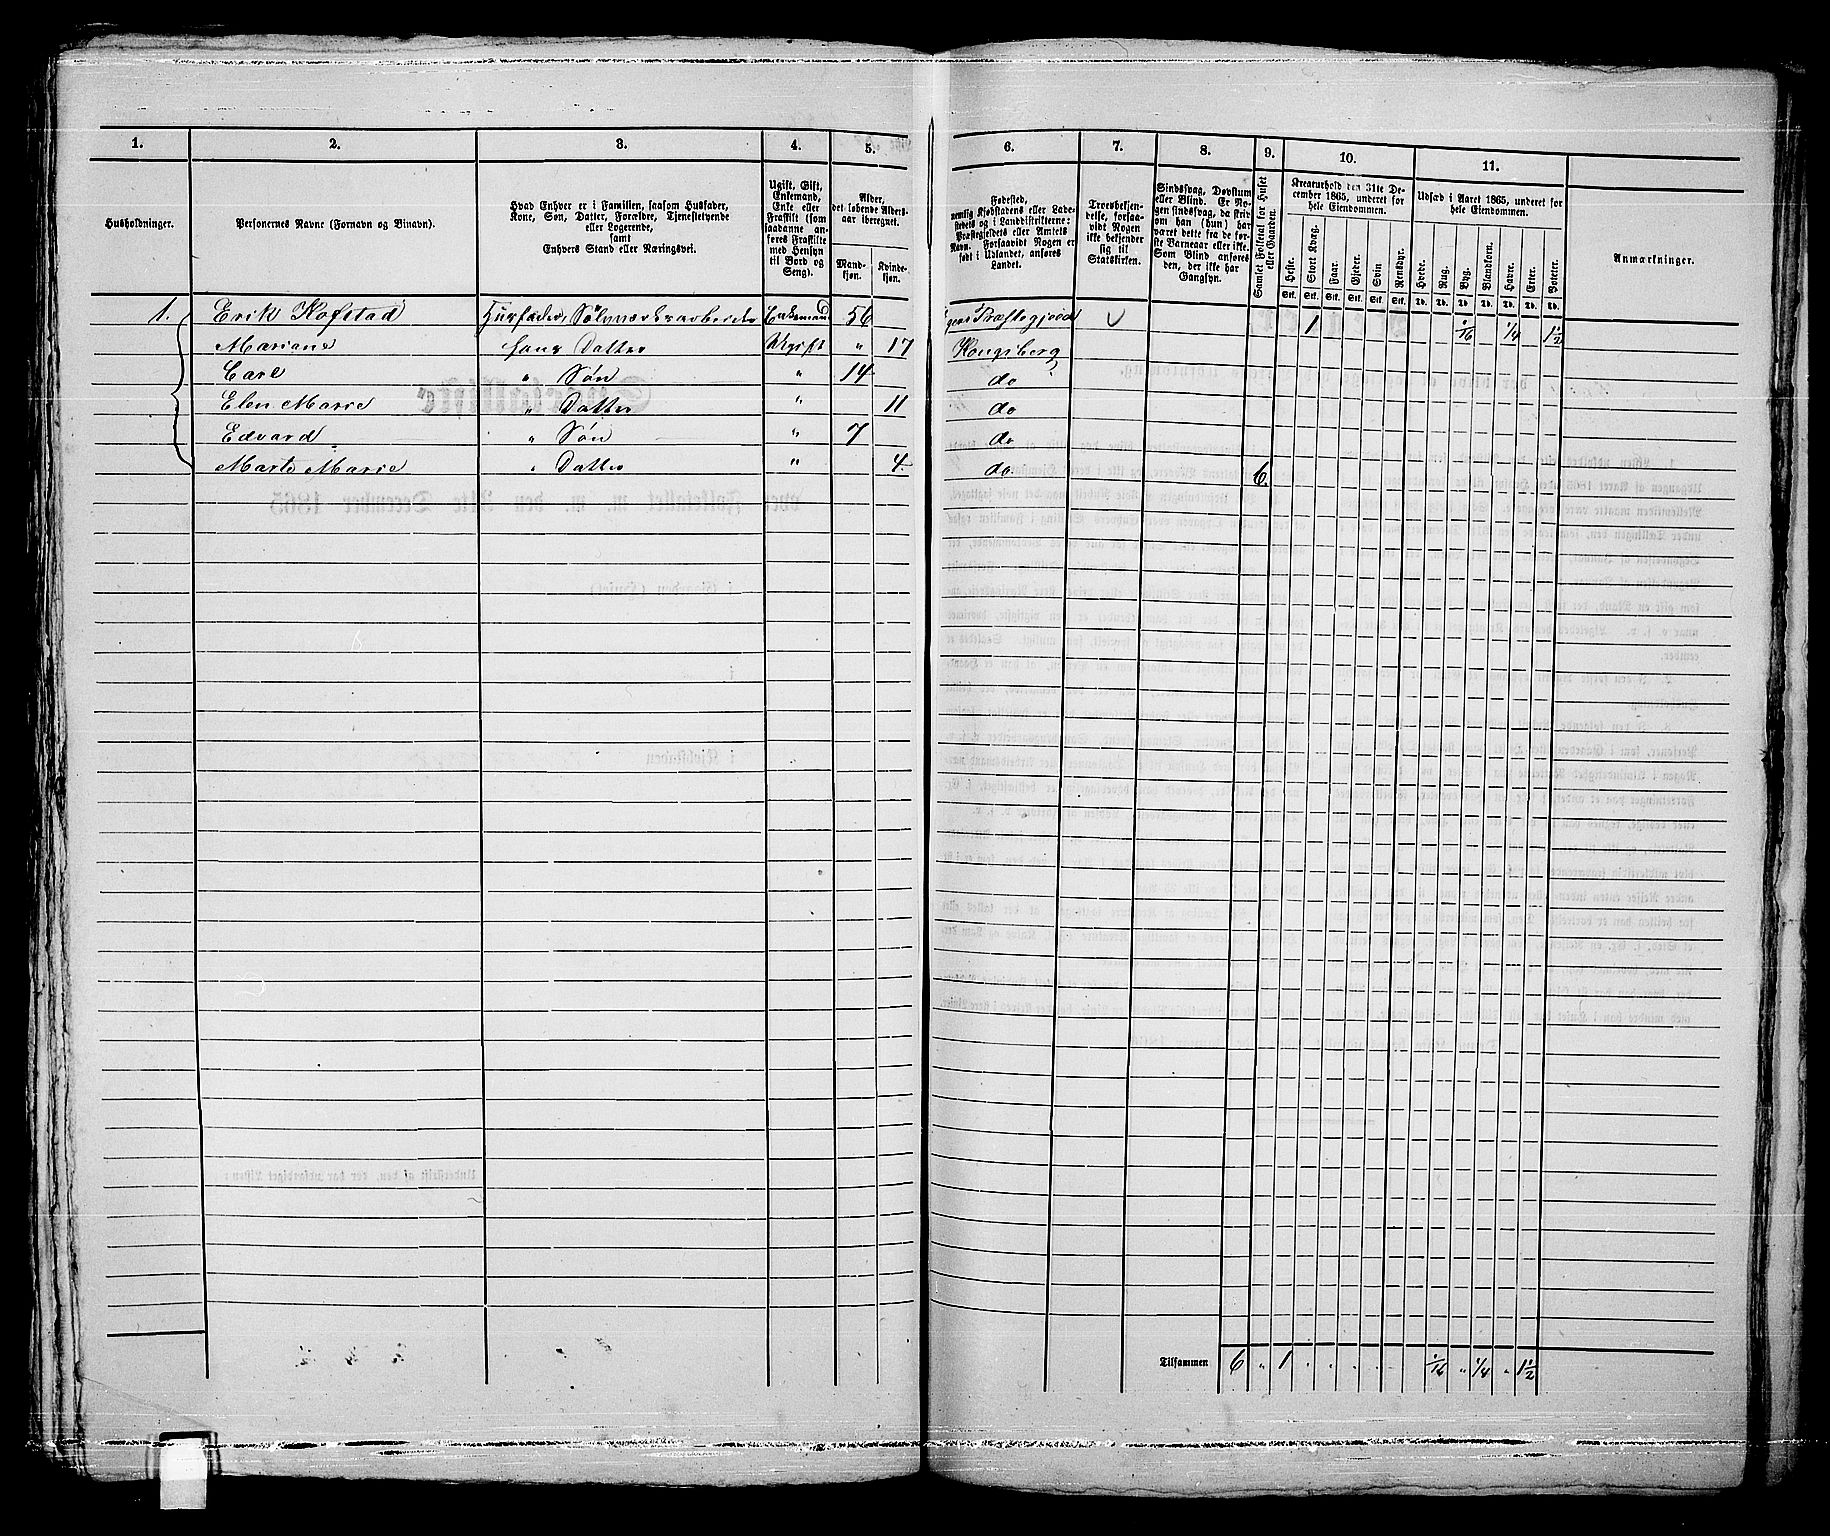 1. 2. 3. 4. 5. 6. 7. 8. 9. 10. 11.
Husholdninger.
Personernes Navne (Fornavn og Binavn).
Hvad Enhver er i Familien, saasom Husfader,
Kone, Søn, Datter, Forældre, Tjenestetyende
eller Logerende,
samt
Enhvers Stand eller Næringsvei.
Ugift, Gift,
Enkemand,
Enke eller
Fraskilt (som
saadanne an-
føres Fraskilte
med Hensyn
til Bord og
Seng).
Alder,
det løbende Alders-
aar iberegnet.
Mand-
kjøn.
Kvinde-
kjøn.
Fødested,
nemlig Kjøbstadens eller Lade-
stedets og i Landdistrikterne:
Præstegjeldets eller Amtets
Navn. Forsaavidt Nogen er
født i Udlandet, anføres
Landet.
Troesbekjen-
delse, forsaa-
vidt Nogen
ikke bekjender
sig til
Statskirken.
Sindssvag, Døvstum
eller Blind. Er No-
gen sindssvag, da skrives
om han (hun) har
været dette fra de før-
ste Barneaar eller ikke.
Som Blind anføres
den, der ikke har
Gangsyn.
Samlet Folketal for Huset
eller Gaarden.
Kreaturhold den 31te De-
cember 1865, underet for
hele Eiendommen.
Heste. Stort Kvæg. Faar. Gjeder. Svin Rensdyr.
Stk. Stk. Stk. Stk. Stk. Stk.
Udsæd i Aaret 1865, underet for
hele Eiendommen.
Hvede. Rug. Byg. Blandkorn. Havre. Erter. Poteter.
Td. Td. Td. Td. Td. Td. Td.
Anmærkninger.
1. Erik Hofstad Husfader, Sølvværksarbeider Enkemand 56 Præstegjeld 1 1/16 1/4 1 1/2
Mariane hans Datter Ugift " 17 Kongsberg
Carl " Søn " 14 do
Elen Marie " Datter " 11 do
Edvard " Søn " 7 do
Marte Marie " Datter " 4 do 6.
Tilsammen 6 " 1 " " " 1/16 " 1/4 " 1 1/2